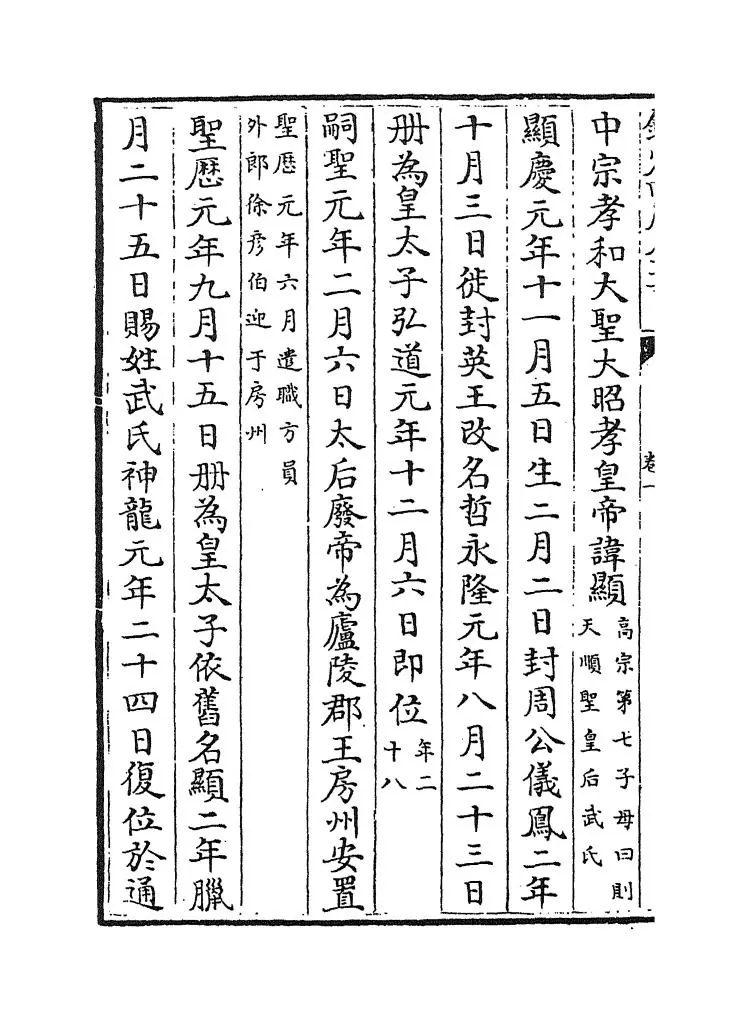 中宗孝和大聖大昭孝皇帝諱顯高宗第七子母曰則天順聖皇后武氏
顯慶元年十一月五日生二月二日封周公儀鳳二年
十月三日徙封英王改名哲永隆元年八月二十三日
册為皇太子弘道元年十二月六日即位年二十八
嗣聖元年二月六日太后廢帝為廬陵郡王房州安置
聖厯元年六月遣職方員外郎徐彦伯迎于房州
聖厯元年九月十五日册為皇太子依舊名顯二年臘
月二十五日賜姓武氏神龍元年二十四日復位於通
卷一